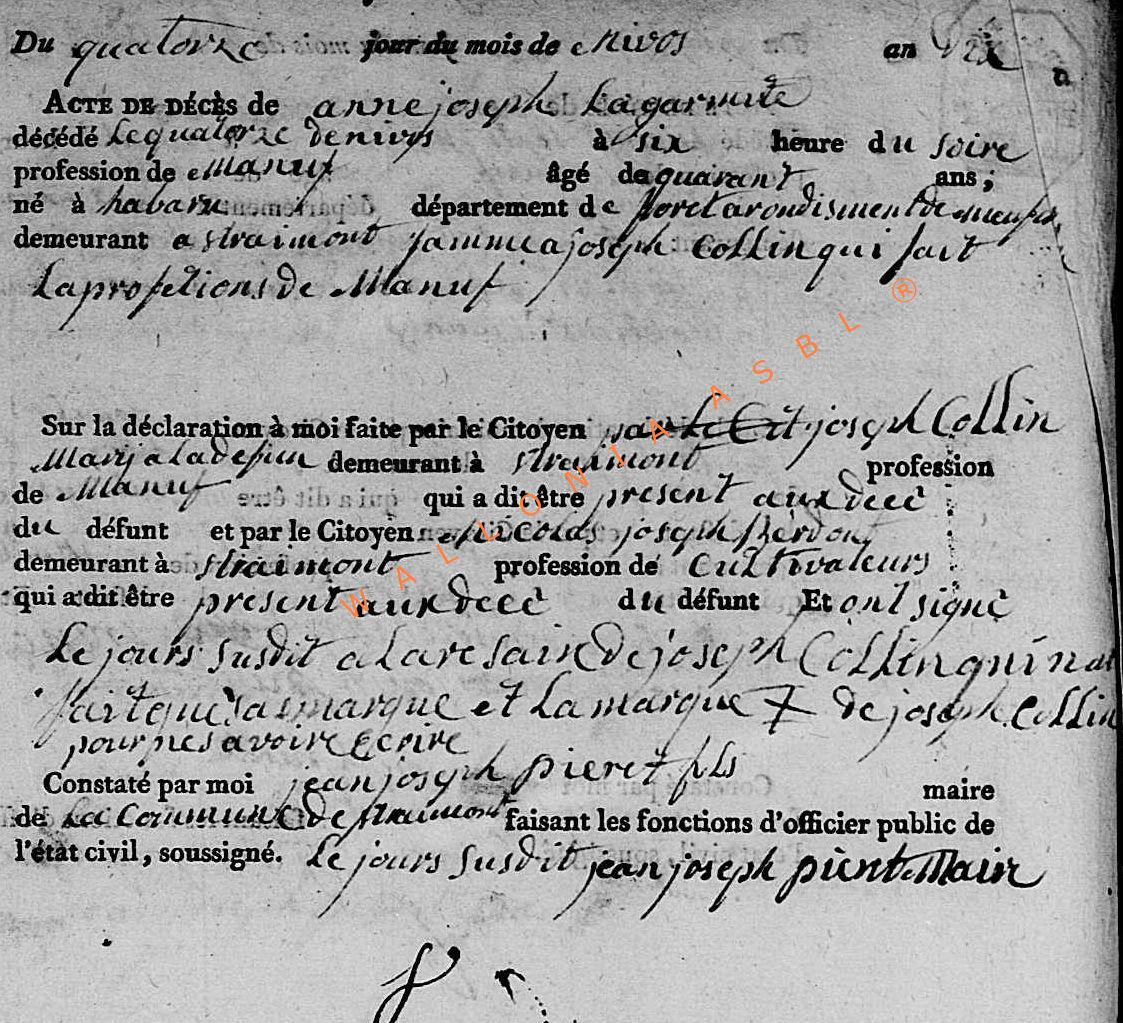 Du quatorze jour du mois de nivos an
ACTE DE DÉCÈS de anne joseph Lagarmite
décédé Le quatorze de nivos à six heure du soire
profession de Manuf âgé de quarant ans ;
né à habaru département de foret arondisment de
demeurant a straimont famme a joseph Collin qui fait
La profetions de Manuf
Sur la déclaration à moi faite par le Citoyen par Le Cit joseph Collin
Marij a la defun demeurant à straimont profession
de Manuf qui a dit être present aux decè
du défunt et par le Citoyen nicolas joseph
demeurant à straimont profession de Cultivateurs
qui a dit être present aux decè du défunt Et ont signè
Le jours susdit a La resain de joseph Collin qui n at
fait que sa marque et La marque de joseph Collin
pour nes avoire Ecrire
Constaté par moi jean joseph pieret fils maire
de La Commune de straimont faisant les fonctions d'officier public de
l'état civil, soussigné. Le jours susdit jean joseph pieret Mair
WALLONIA ASBL ®